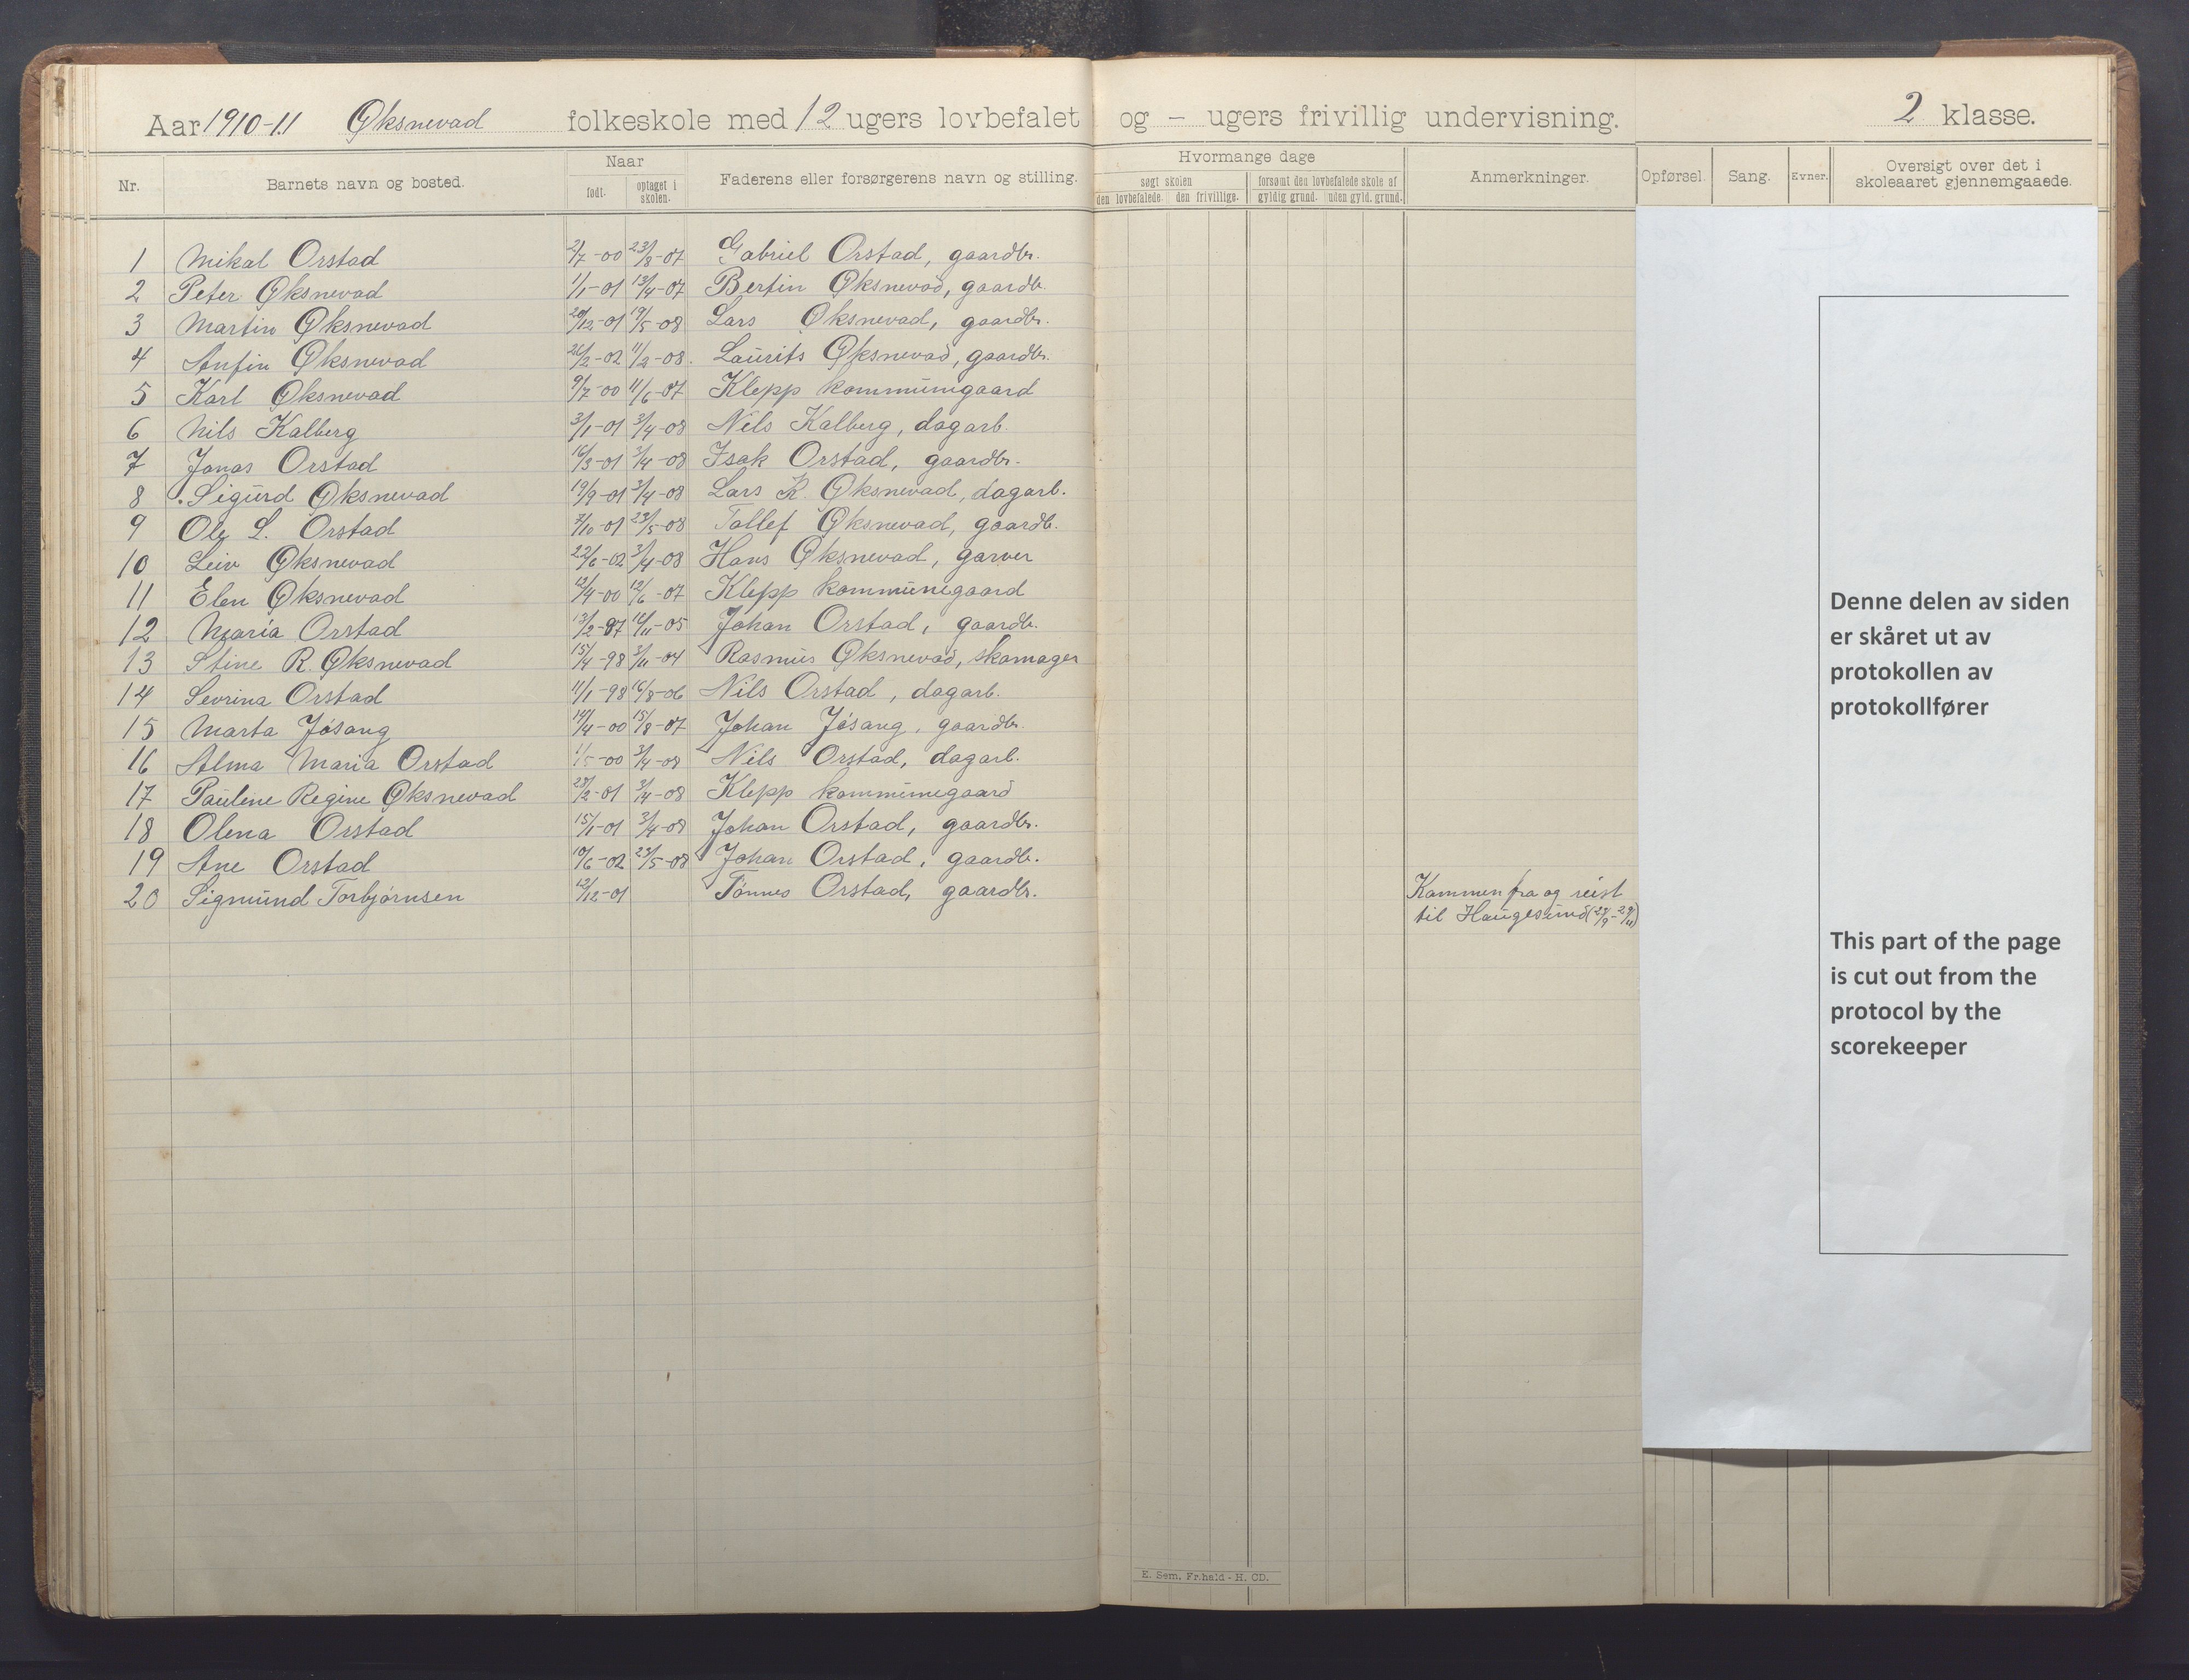 Aar 1910-11 Øksnevad folkeskole med 12 ugers lovbefalet og - ugers frivillig undervisning. 2 klasse.
Nr. Barnets navn og bosted. Naar født. optaget i skolen. Faderens eller forsørgerens navn og stilling. Hvormange dage søgt skolen den lovbefalede. den frivillige. forsømt den lovbefalede skole af gyldig grund. uden gyld. grund. Anmerkninger. Opførsel. Sang. Evner. Oversigt over det i skoleaaret gjennemgaaede.
1 Mikal Orstad 2/7-00 23/8-07 Gabriel Orstad, gaardbr.
2 Peter Øksnevad 1/1-01 13/4-07 Bertin Øksnevad, gaardb.
3 Martin Øksnevad 20/12-01 19/5-08 Lars Øksnevad, gaardbr.
4 Anfin Øksnevad 26/2-02 11/3-08. Laurits Øksnevad, gaardbr.
5 Karl Øksnevad 9/7-00 11/6-07 Klepp kommunegaard
6 Nils Kalberg 3/1-01 3/4-08 Nils Kalberg, dagarb.
7 Jonas Orstad 16/3-01 3/4-08 Isak Orstad, gaardbr.
8 Sigurd Øksnevad 19/9-01 3/4-08 Lars K. Øksnevad, dagarb.
9 Ole L. Orstad 7/10-01 23/5-08 Tollef Øksnevad, gaardb.
10 Leiv Øksnevad 22/6-02 3/4-08 Hans Øksnevad, garver
11 Elen Øksnevad 12/4-00 12/6-07 Klepp kommunegaard
12 Maria Orstad 13/2-97 16/11-05 Johan Orstad, gaardb.
13 Stine R. Øksnevad 15/4-98 3/11-04 Rasmus Øksnevad, skomager
14 Sevrina Orstad 11/1-98 16/8-06 Nils Orstad, dagarb.
15 Marta Jøsang 14/4-00 15/8-07 Johan Jøsang, gaardbr.
16 Alma Maria Orstad 1/5-00 3/4-08 Nils Orstad, dagarb.
17 Pauline Regine Øksnevad 28/2-01 3/4-08 Klepp kommunegaard
18 Olena Orstad 15/1-01 3/4-08 Johan Orstad, gaardbr.
19 Ane Orstad 10/6-02 23/5-08 Johan Orstad, gaardb.
20 Sigmund Torbjørnsen 12/12-01 Tønnes Orstad, gaardbr. Kommen fra og reist
til Haugesund (29/9-29/11)
Denne delen av siden
er skåret ut av
protokollen av
protokollfører
This part of the page
is cut out from the
protocol by the
scorekeeper
E. Sem, Fr.hald - H. CD.